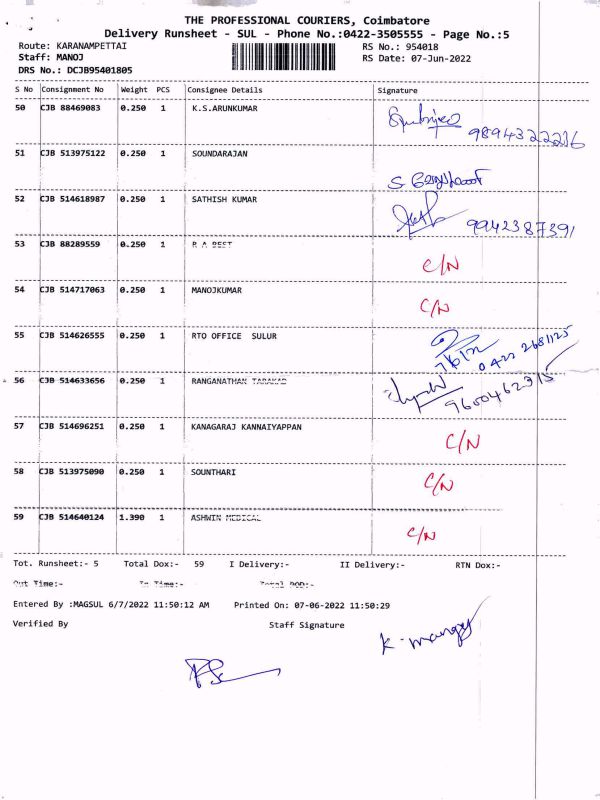 THE PROFESSIONAL COURIERS, Coimbatore
Delivery Runsheet - SUL - Phone No.:0422-3505555 - Page No.:5
Route: KARANAMPETTAI RS No.: 954018
Staff: MANOJ RS Date: 07-Jun-2022
DRS No.: DCJB95401805
S No Consignment No Weight PCS Consignee Details Signature
50 CJB 88469083 0.250 1 K.S.ARUNKUMAR
9894322216
51 CJB 513975122 0.250 1 SOUNDARAJAN
S
52 CJB 514618987 0.250 1 SATHISH KUMAR
9942387391
53 CJB 88289559 0.250 1 R A BEST
C/N
54 CJB 514717063 0.250 1 MANOJKUMAR
C/N
55 CJB 514626555 0.250 1 RTO OFFICE SULUR
0422 2681125
56 CJB 514633656 0.250 1 RANGANATHAN TABAKAD
9600462315
57 CJB 514696251 0.250 1 KANAGARAJ KANNAIYAPPAN
C/N
58 CJB 513975090 0.250 1 SOUNTHARI
C/N
59 CJB 514640124 1.390 1 ASHWIN MEDICAL
C/N
Tot. Runsheet:- 5 Total Dox:- 59 I Delivery:- II Delivery:- RTN Dox:-
Out Time:- In Time:- Total POD:-
Entered By :MAGSUL 6/7/2022 11:50:12 AM Printed On: 07-06-2022 11:50:29
Verified By Staff Signature